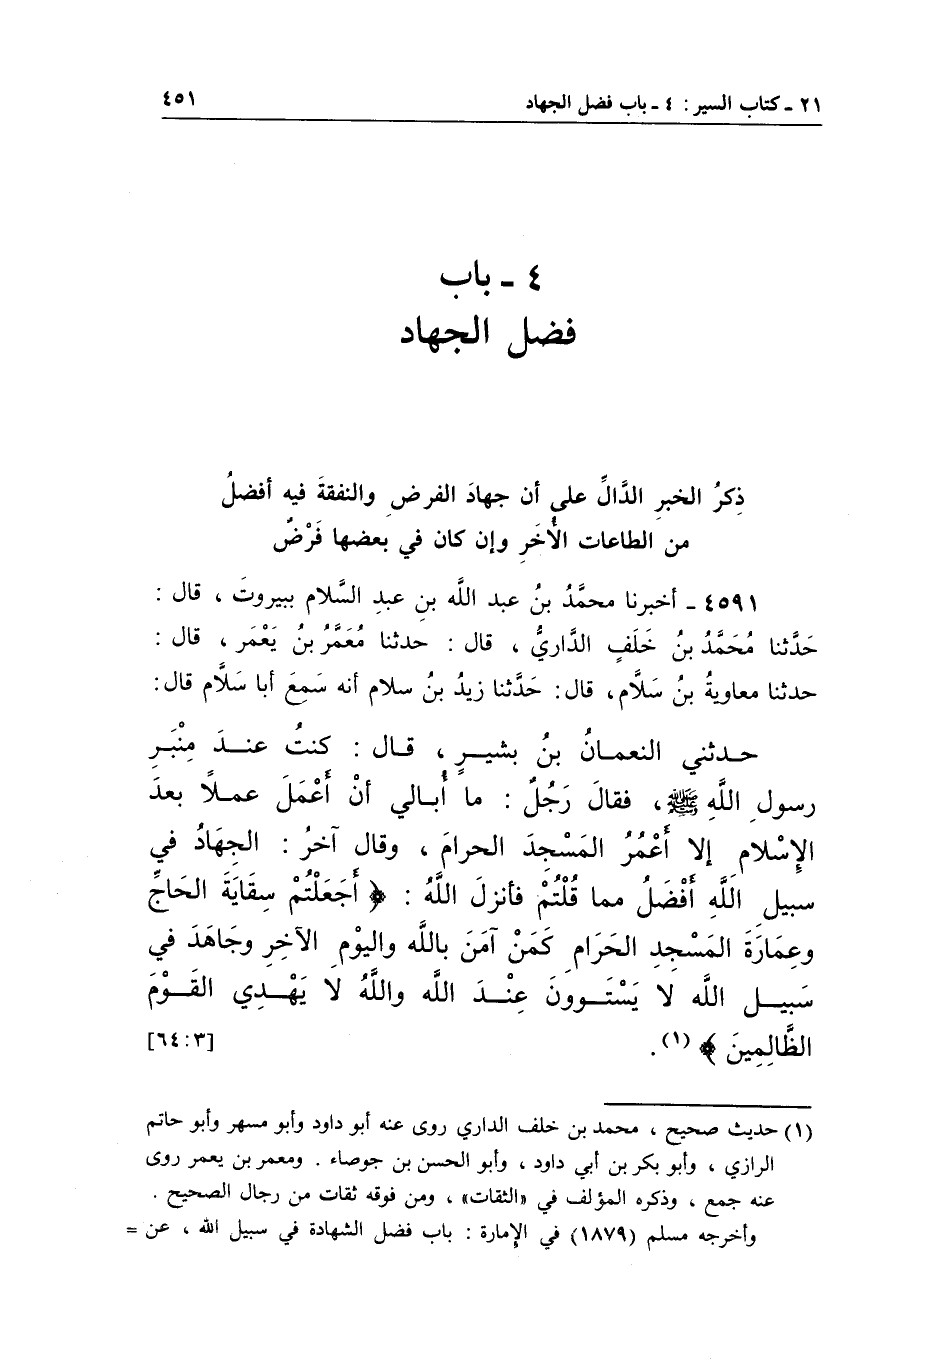 ٢١ ـ كتاب السير : ٤ ـ باب فضل الجهاد ٤٥١
٤ ـ باب
فضل الجهاد
ذِكرُ الخبرِ الدَّالِّ على أن جهادَ الفرضِ والنفقةَ فيه أفضلُ
من الطاعات الأُخَرِ وإن كان في بعضها فَرْضٌ
٤٥٩١ ـ أخبرنا محمَّدُ بنُ عبد اللَّه بنِ عبدِ السَّلام ببيروتَ ، قال :
حَدَّثنا مُحَمَّدُ بنُ خَلَفٍ الدَّاريُّ ، قال : حدثنا مُعَمَّرُ بنُ يَعْمَر ، قال :
حدثنا معاويةُ بنُ سَلَّام، قال: حَدَّثنا زيدُ بنُ سلام أنه سَمِعَ أبا سَلَّام قال:
حدثني النعمانُ بنُ بشيرٍ ، قال : كنتُ عندَ مِنْبَرِ
رسولِ اللَّهِ ﷺ، فقالَ رَجُلٌ : ما أُبالي أنْ أَعْمَلَ عملاً بعدَ
الإِسْلامِ إلا أَعْمُرُ المَسْجدَ الحرامَ ، وقال آخرُ : الجِهَادُ في
سبيلِ اللَّهِ أَفْضَلُ مما قُلْتُمْ فأنزلَ اللَّهُ : ﴿ أَجَعَلْتُمْ سِقَايَةَ الحَاجِّ
وعِمَارَةَ المَسْجدِ الحَرَامِ كَمَنْ آمَنَ باللَّه واليوْمِ الآخِرِ وجَاهَدَ في
سَبِيلِ اللَّه لا يَسْتَوونَ عِنْدَ اللَّه واللَّهُ لا يَهْدِي القَوْمَ
الظَّالِمِينَ ﴾ (١). [٦٤:٣]
(١) حديث صحيح ، محمد بن خلف الداري روى عنه أبو داود وأبو مسهر وأبو حاتم
الرازي ، وأبو بكر بن أبي داود ، وأبو الحسن بن جوصاء . ومعمر بن يعمر روى
عنه جمع ، وذكره المؤلف في «الثقات» ، ومن فوقه ثقات من رجال الصحيح .
وأخرجه مسلم (١٨٧٩) في الإمارة : باب فضل الشهادة في سبيل الله ، عن =